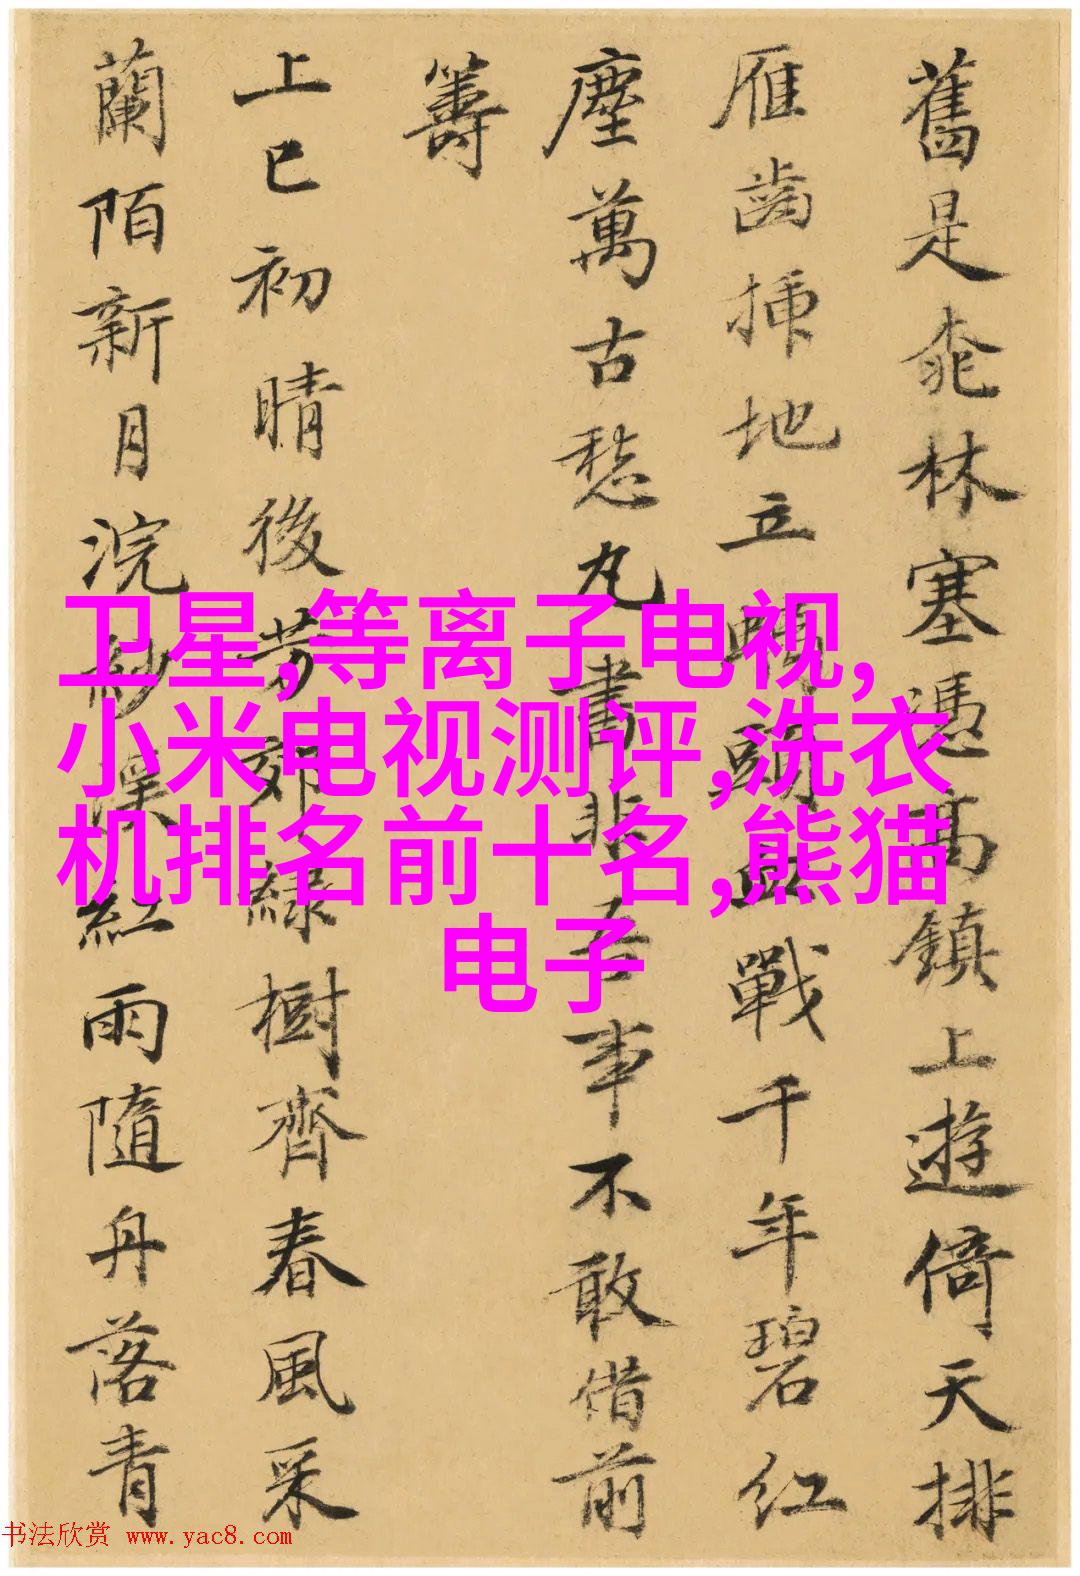 舊是桃林塞憑高鎮上遊倚天排
雁齒插地立頭血戰千年碧紅
塵萬古愁丸書非吾事不敢借前
籌
上巳初晴後芳郊綠樹齊春風采
蘭陌新月浣紗溪紅雨隨丹落青
卫星,等离子电视,
小米电视测评,洗衣
机排名前十名,熊猫
电子
书法欣赏 www.yac8.com